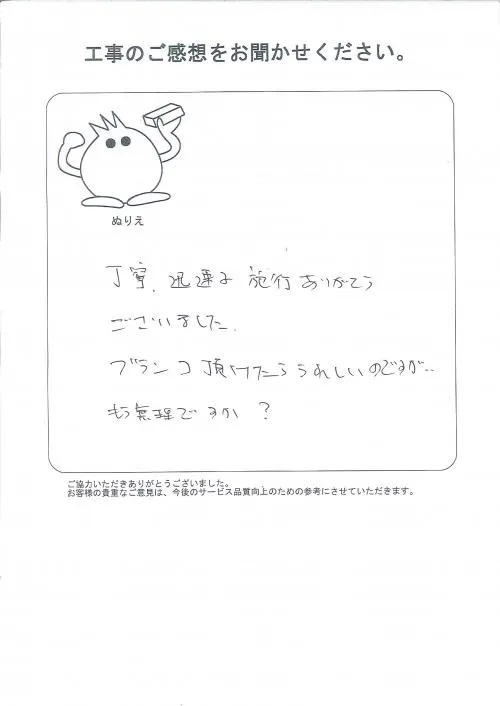 工事のご感想をお聞かせください。
ぬりえ
丁寧、迅速な施行ありがとう
ございました。
ブランコ頂けたらうれしいのですが‥
もう無理ですか?
ご協力いただきありがとうございました。
お客様の貴重なご意見は、今後のサービス品質向上のための参考にさせていただきます。